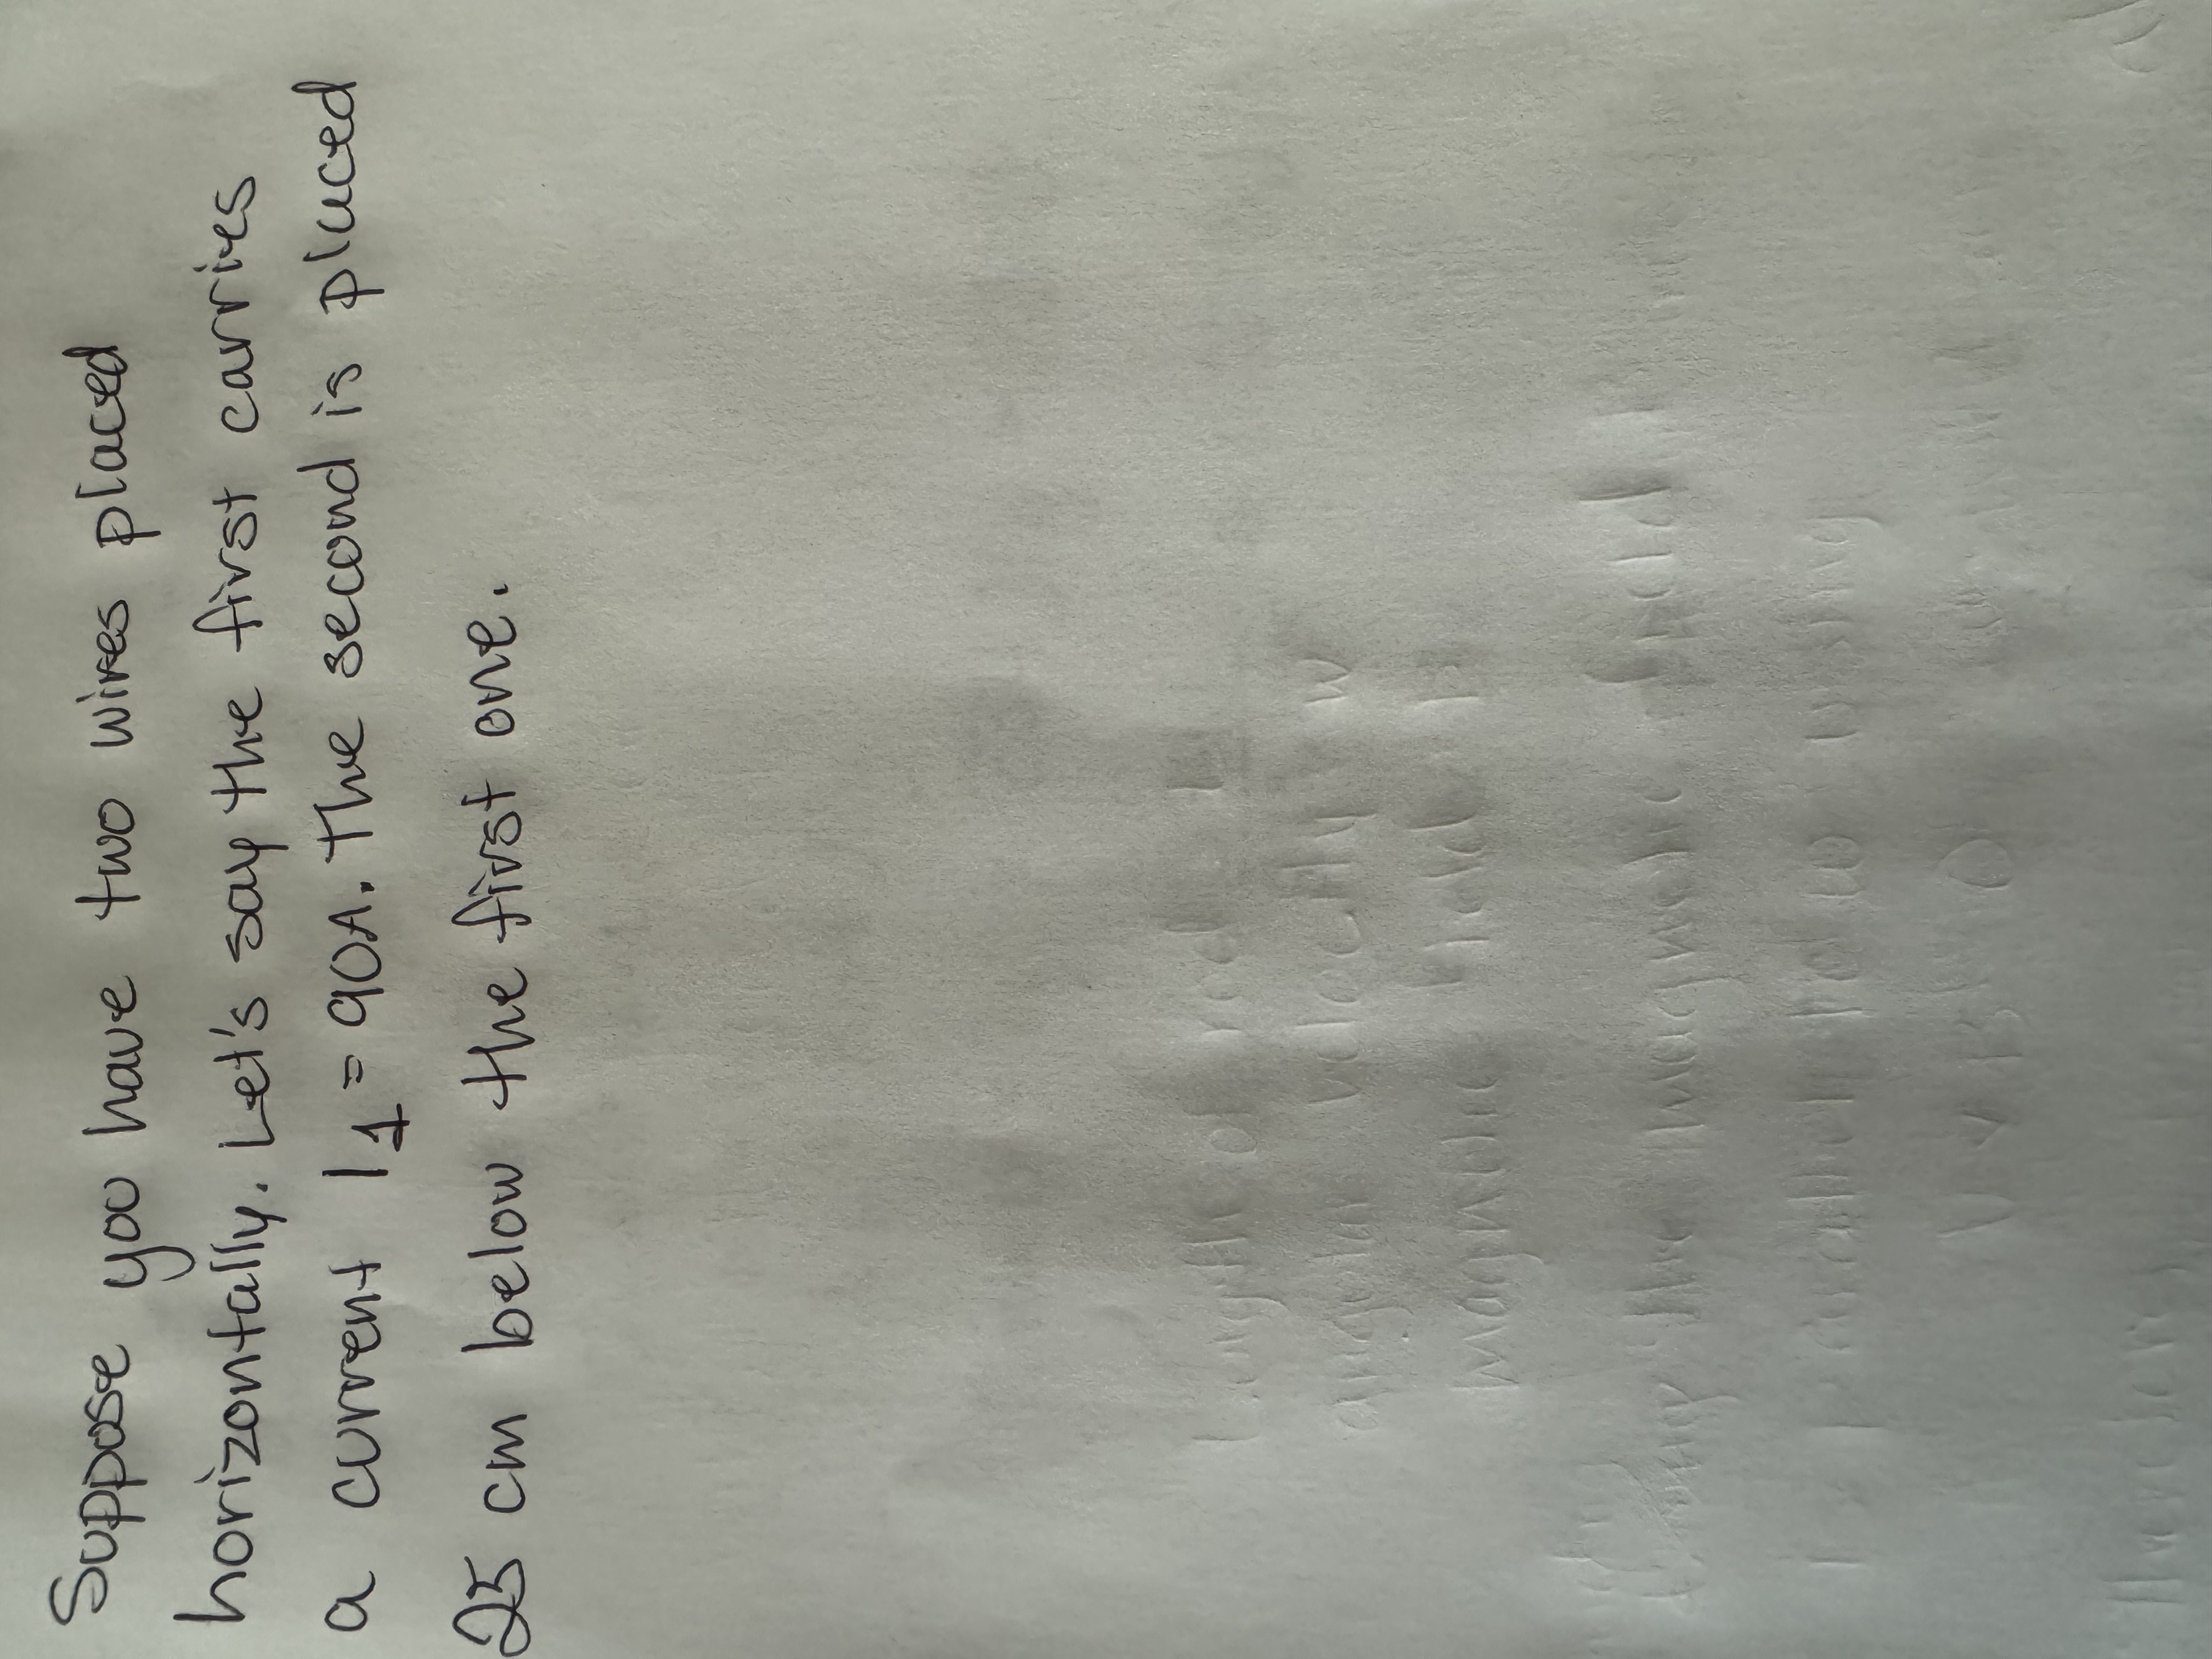 Suppose you have two wires placed
horizontally. Let's say the first carries
a current I₁ = 90A. The second is placed
25 cm below the first one.